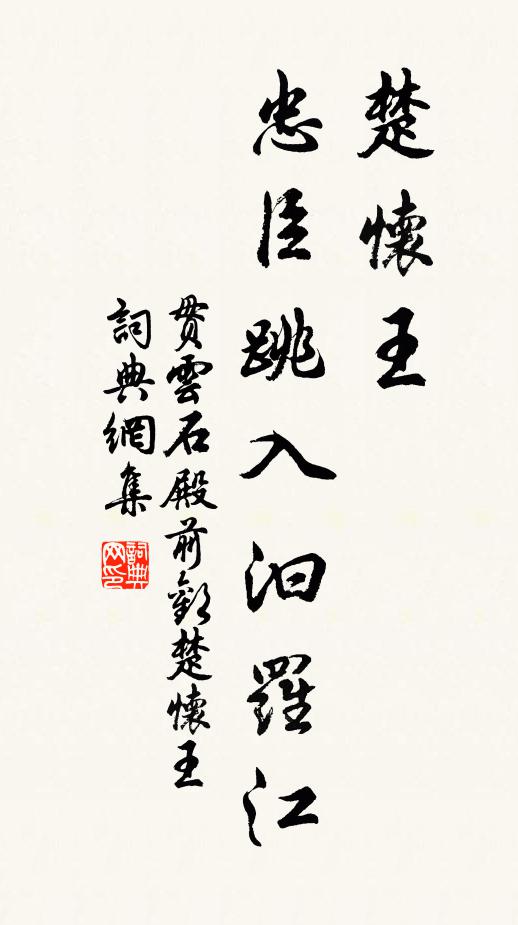 楚懷王
忠臣跳入汨羅江
貫雲石殿前歡楚懷王
詞典網集
詞典
网印